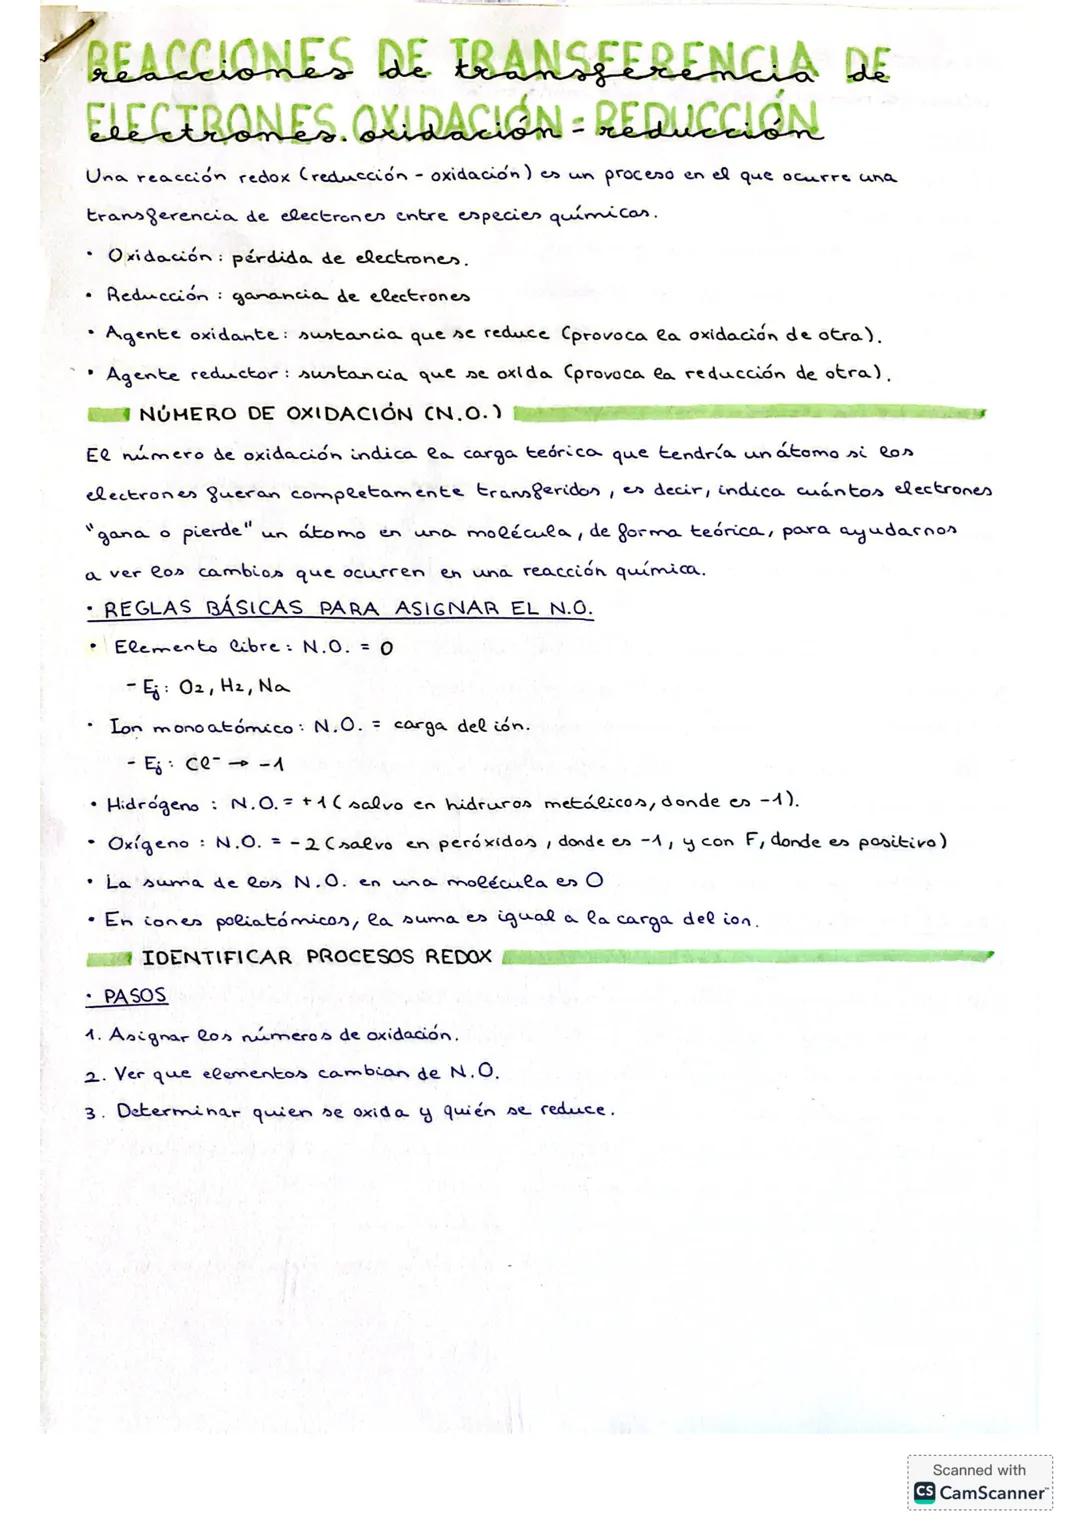 REACCIONES DE TRANSFERENCIA DE
reacciones de transferencia de
ELECTRONES. OXIDACIÓN - REDUCCIÓN
electrones. oxidación - reducción
Una reacción redox (reducción - oxidación) es un proceso en el que ocurre una
transferencia de electrones entre especies químicas.
• Oxidación : pérdida de electrones.
• Reducción : ganancia de electrones
• Agente oxidante : sustancia que se reduce (provoca la oxidación de otra).
• Agente reductor : sustancia que se oxida (provoca la reducción de otra).
NÚMERO DE OXIDACIÓN (N.O.)
El número de oxidación indica la carga teórica que tendría un átomo si los
electrones fueran completamente transferidos, es decir, indica cuántos electrones
"gana o pierde" un átomo en una molécula, de forma teórica, para ayudarnos
a ver los cambios que ocurren en una reacción química.
· REGLAS BÁSICAS PARA ASIGNAR EL N.O.
• Elemento libre : N.O. = 0
- Ej : O2, H2, Na
• Ion monoatómico : N.O. = carga del ión.
- Ej : Cl⁻ → -1
• Hidrógeno : N.O. = +1 (salvo en hidruros metálicos, donde es -1).
• Oxígeno : N.O. = -2 (salvo en peróxidos, donde es -1, y con F, donde es positivo)
• La suma de los N.O. en una molécula es 0
• En iones poliatómicos, la suma es igual a la carga del ion.
IDENTIFICAR PROCESOS REDOX
· PASOS
1. Asignar los números de oxidación.
2. Ver que elementos cambian de N.O.
3. Determinar quien se oxida y quién se reduce.
Scanned with
CS CamScanner